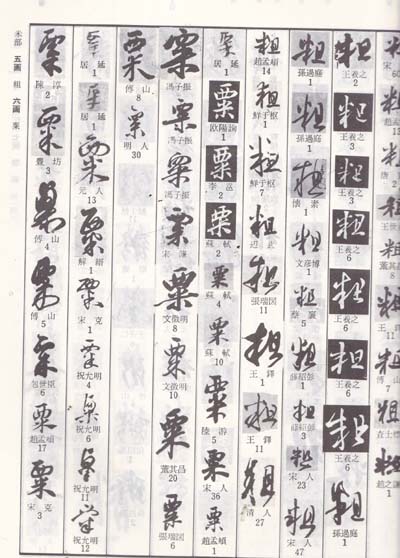 粗 王羲之 2
粗 王羲之 3
粗 王羲之 3
粗 王羲之 6
粗 王羲之 6
粗 王羲之 6
粗 王羲之 6
粗 孫過庭 1
粗 孫過庭 1
粗 孫過庭 1
粗 懷素 1
粗 文彦博 1
粗 蔡襄 5
粗 薛紹彭 1
粗 薛紹彭 3
粗 宋人 23
粗 宋人 47
粗 趙孟頫 14
粗 鮮于枢 1
粗 鮮于枢 7
粗 邊武
粗 張瑞図 11
粗 王鐸 1
粗 王鐸 11
粗 清人 27
粟 居延 1
粟 欧陽詢 1
粟 李邕 1
粟 蘇軾 2
粟 蘇軾 4
粟 蘇軾 10
粟 陸游 5
粟 宋人 36
粟 趙孟頫 1
粟 馮子振
粟 馮子振
粟 馮子振
粟 宋濂
粟 文徴明 8
粟 文徴明 10
粟 董其昌 20
粟 張瑞図 6
粟 傅山 8
粟 明人 30
粟 居延 1
粟 居延 1
粟 元人 13
粟 解縉 1
粟 宋克 1
粟 祝允明 4
粟 祝允明 6
粟 祝允明 11
粟 祝允明 12
粟 陳淳 2
粟 豊坊 2
粟 傅山 4
粟 傅山 5
粟 包世臣 6
粟 趙孟頫 17
粟 宋克 3
米部 五画 粗 六画 粟